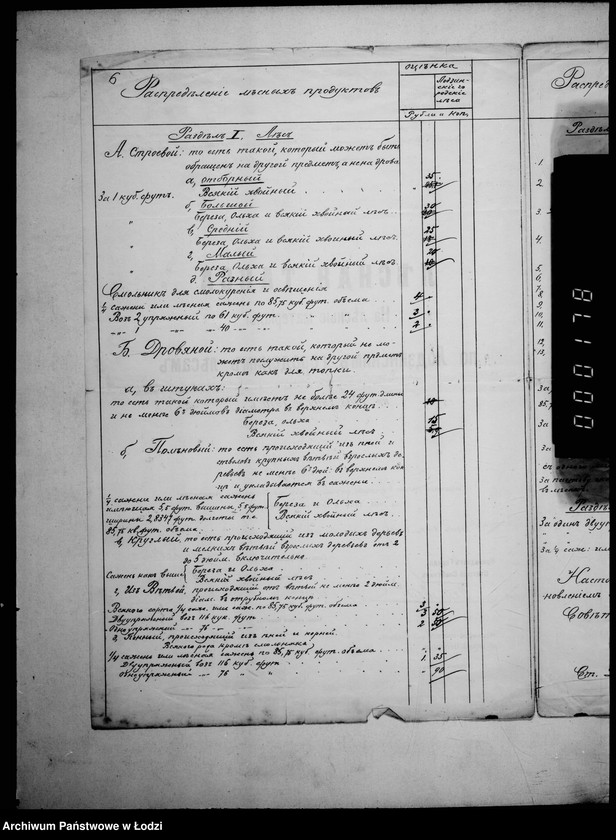 6
Распредѣленіе лѣсныхъ продуктовъ
оцѣнка
Рубли и Коп.
Раздѣлъ I. Лѣсъ
А. Строевой: то есть такой, который можетъ быть
обращенъ на другой предметъ, а не на дрова
а, отборный
За 1 куб. футъ. Всякій хвойный
б, Большой
Береза, Ольха и всякій хвойный лѣсъ
в, Средній
Береза, Ольха и всякій хвойный лѣсъ
г, Малый
Береза, Ольха и всякій хвойный лѣсъ
д, Разный
Смольникъ для смолокуренія и освѣщенія
1/4 сажени или лѣсная сажень по 85,75 куб. фут. объема
Возъ 2 упряжный по 61 куб. фут.
1 40
Б. Дровяной: то есть такой, который не мо-
жетъ послужить на другой предметъ
кромѣ какъ для топки.
а, въ штукахъ:
то есть такой который имѣетъ не болѣе 24 фут. длины
и не менѣе 6 дюймовъ діаметра въ верхнемъ концѣ
Береза, ольха
Всякій хвойный лѣсъ
б, Полѣновый: то есть происходящій изъ пней и
стволовъ крупныхъ вѣтвей взрослыхъ де-
ревьевъ не менѣе 6 дюй. въ верхнемъ кон-
цѣ и укладывается въ сажени.
1/4 сажени или лѣсная сажень
имѣющая 5,5 фут. вышины, 5,5 фут.
ширины 2,8347 фут. долготы т. е.
85,75 кв. фут. объема
Береза и Ольха
Всякій хвойный лѣсъ
в, Круглый, то есть происходящій изъ молодыхъ деревьевъ
и мелкихъ вѣтвей взрослыхъ деревьевъ отъ 2
до 5 дюйм. включительно
Сажень какъ выше
Береза и Ольха
Всякій хвойный лѣсъ
г, Изъ Вѣтвей, происходящій отъ вѣтвей не менѣе 2 дюйм.
діам. въ отрубномъ концѣ
Всякого сорта, 1/4 саж. или саж. по 85,75 куб. фут. объема
Двуупряжный возъ 116 куб. фут.
Одноупряжный 75
д, Пенный, происходящій изъ пней и корней.
Всякого рода кромѣ смольника,
1/4 сажени или лѣсная сажень по 85,75 куб. фут. объема
Двуупряжный возъ 116 куб. фут
Одноупряжный 76
Распред
Раздѣлъ
1.
2.
3.
4.
5.
6.
7.
8.
9.
10.
11.
12.
13.
За
85,7
За
За
Раздѣ
За один двуу
За 1/4 саж. или
Насто
новленіемъ
Совѣт
Ст.
000178
Archiwum Państwowe w Łodzi